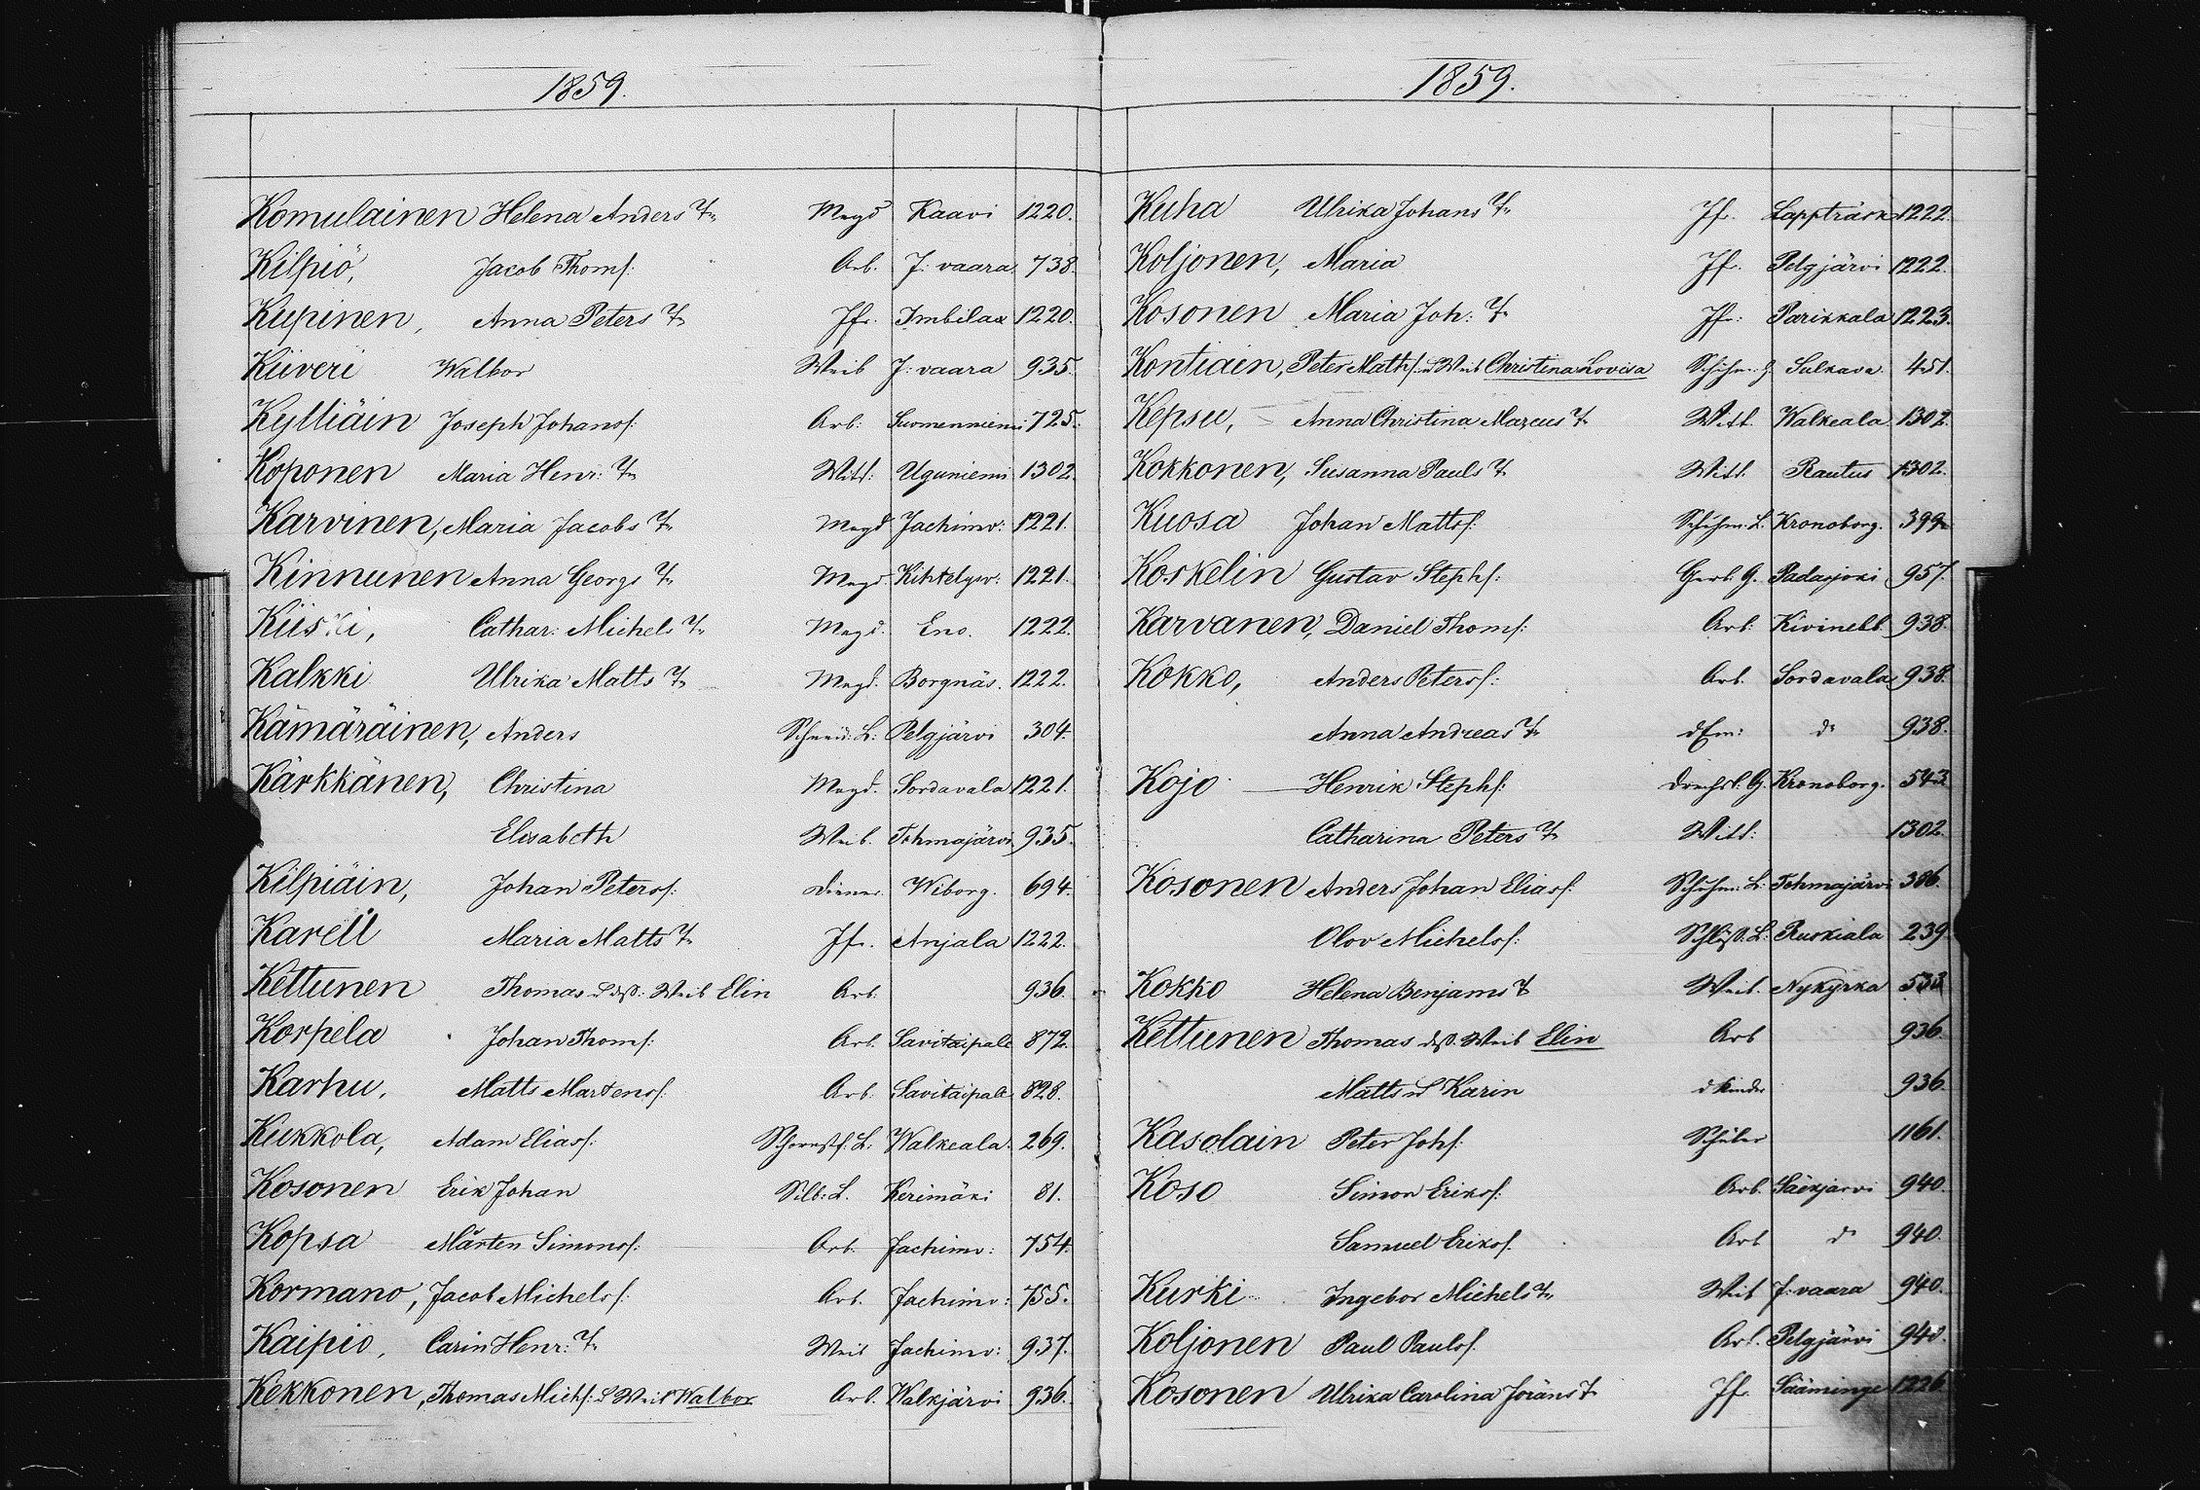 1859.
Komulainen Helena Anders Tr. Magd Kaavi 1220.
Kilpiö, Jacob Thoms: Arb. J: vaara 738.
Kupinen, Anna Peters Tr. Jfr. Imbilax 1220.
Kiiveri Walbor Weib J: vaara 935.
Kylliäin Joseph Johans: Arb: Suomenniemi 725.
Koponen Maria Henr: Tr. Witt: Uguniemi 1302.
Karvinen, Maria Jacobs Tr. Magd Jachimv: 1221.
Kinnunen Anna Georgs Tr. Magd Kihtelysv: 1221.
Kiiski, Cathar: Michels Tr. Magd. Eno. 1222.
Kalkki Ulrika Matts Tr. Magd. Borgnäs. 1222.
Kämäräinen, Anders Schneid: L: Pelgjärvi 304.
Kärkkänen, Christina Magd. Sordavala 1221.
Elisabeth Weib. Tohmajärvi 935.
Kilpiäin, Johan Peters: Diener Wiborg. 694.
Karell Maria Matts Tr. Jfr. Anjala 1222.
Kettunen Thomas u deß: Weib Elin Arb. 936.
Korpela Johan Thoms: Arb. Savitaipale 872.
Karhu, Matts Martens: Arb. Savitaipale 828.
Kukkola, Adam Elias: Schornstf. L: Walkeala. 269.
Kosonen Erik Johan Silb: L. Kerimäki 81.
Kopsa Mårten Simons: Arb. Jachimv: 754.
Kormano, Jacob Michels: Arb. Jachimv: 755.
Kaipio, Carin Henr: Tr. Weib Jachimv: 937.
Kekkonen, Thomas Michs: u Weib Walbor Arb. Walkjärvi 936.
1859.
Kuha Ulrika Johans Tr. Jfr. Lappträsk 1222.
Koljonen, Maria Jfr. Pelgjärvi 1222.
Kosonen Maria Joh: Tr. Jfr: Parikkala 1223.
Kontiain, Peter Maths: u Weib Christina Lovisa Schuhm: G Sulkava. 451.
Kepsu, Anna Christina Marcus Tr. Witt. Walkeala. 1302.
Kokkonen, Susanna Pauls Tr. Witt. Rautus 1302.
Kuosa Johan Matts: Schuhm: L. Kronoborg. 399.
Koskelin Gustav Stephs: Gerb: G. Padasjoki 957.
Karvanen, Daniel Thoms: Arb: Kivineb. 938.
Kokko, Anders Peters: Arb. Sordavala 938.
Anna Andreas Tr. d Em: do 938.
Kojo Henrik Stephs: Drechsl: G. Kronoborg. 543.
Catharina Peters Tr. Witt: 1302.
Kosonen Anders Johan Elias: Schuhm: L. Tohmajärvi 386.
Olov Michels: Schloß. L: Ruskiala 239.
Kokko Helena Benjams Tr. Weib. Nykyrka
Kettunen Thomas deß. Weib Elin Arb 936.
Matts u Karin d Kinder 936.
Kasolain Peter Johs: Schüler 1161.
Koso Simon Eriks: Arb. Säkjärvi 940.
Samuel Eriks: Arb do 940.
Kurki Ingebor Michels Tr. Weib J: vaara 940.
Koljonen Paul Pauls: Arb. Pelgjärvi 940.
Kosonen Ulrika Carolina Jöräns Tr. Jfr. Sääminge 1226.